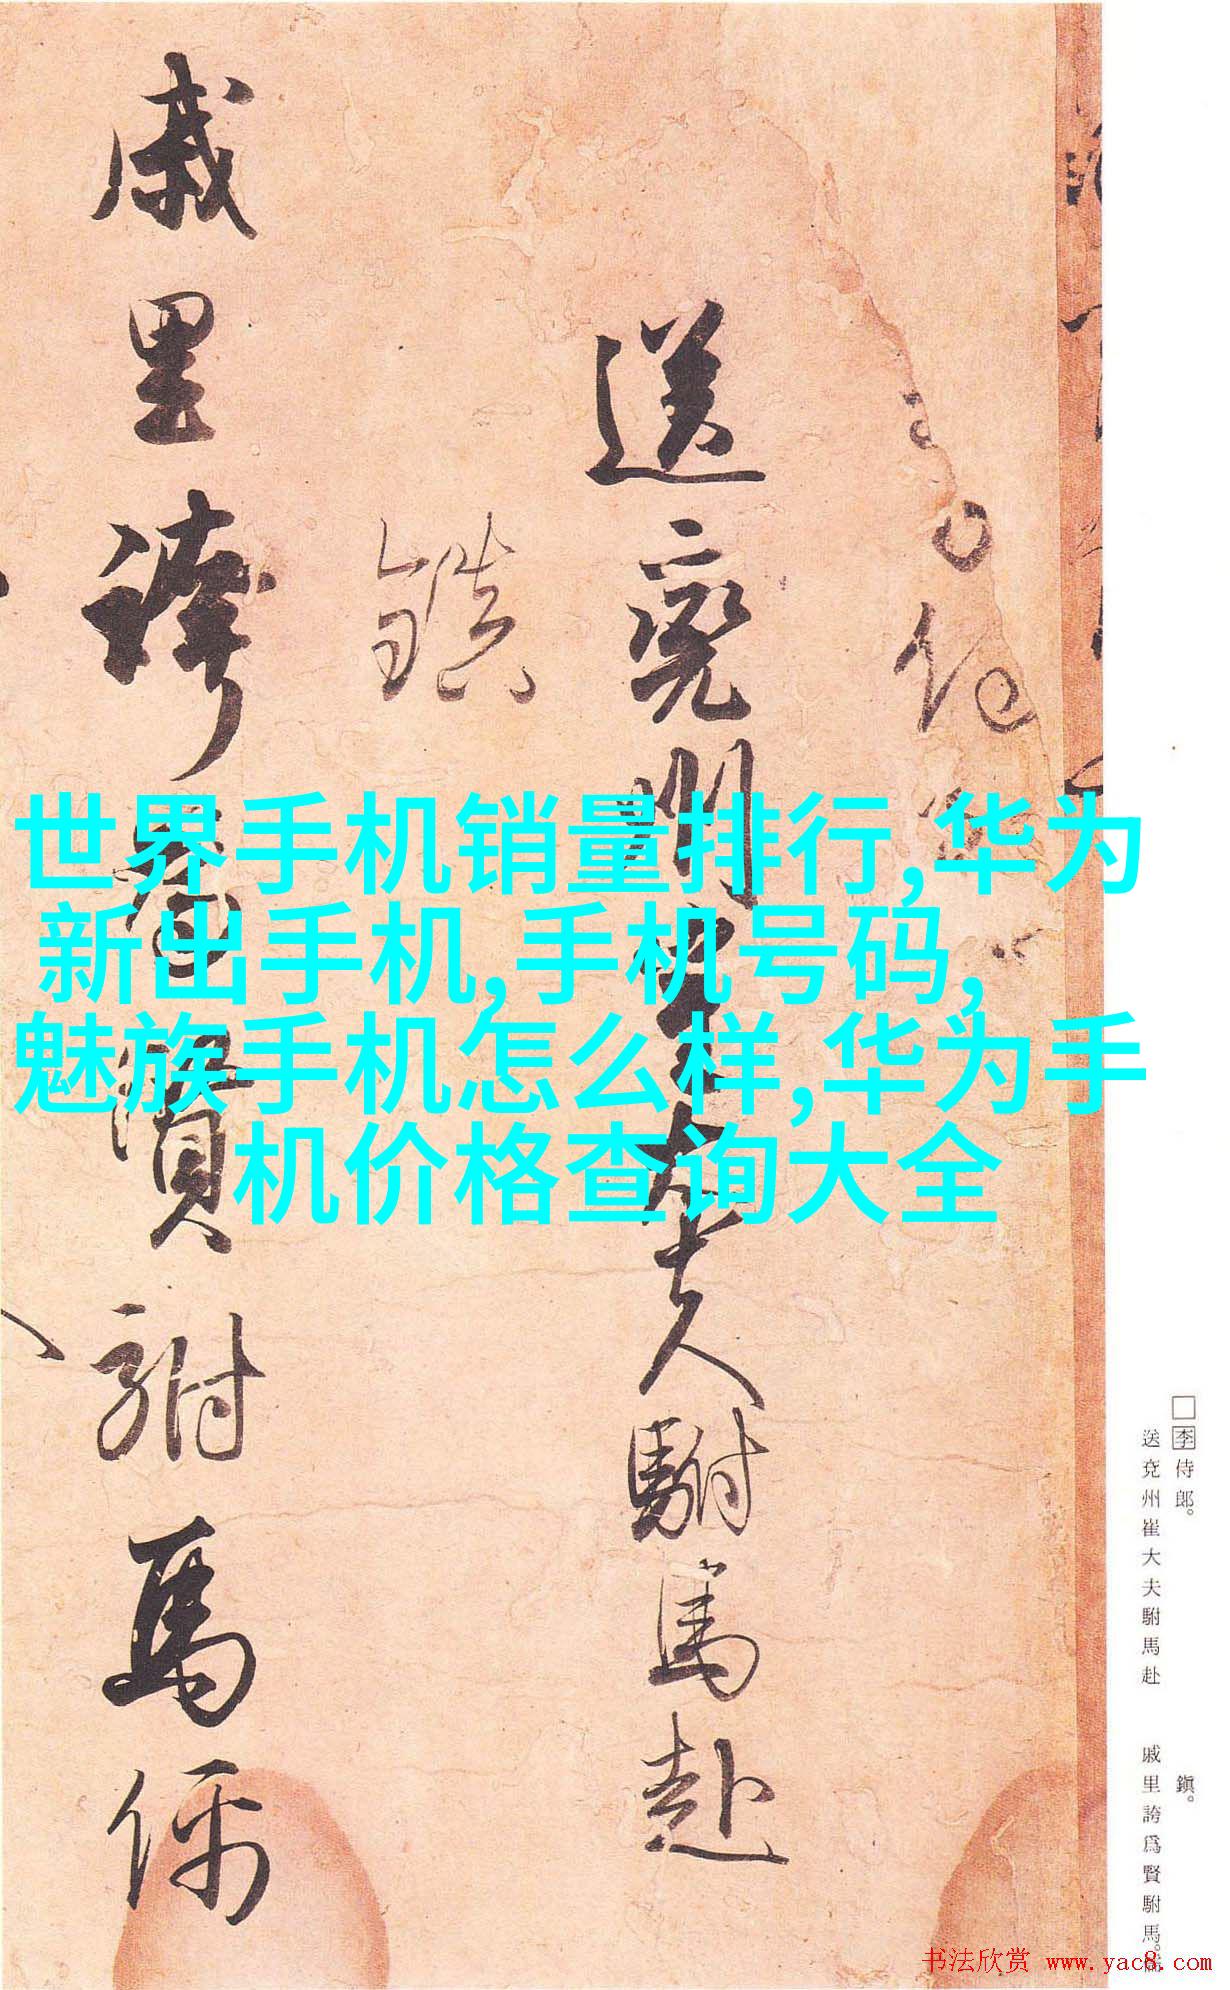 世界手机销量排行,华为
新出手机,手机号码,
魅族手机怎么样,华为手
机价格查询大全
送兖州崔大夫駙馬赴
鎮
戚里誇為賢駙馬儒
□李侍郎。
送兖州崔大夫駙馬赴
鎮。
戚里誇爲賢駙馬。儒
书法欣赏 www.yac8.com